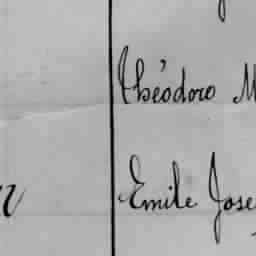 Théodoro M
Emile Jose